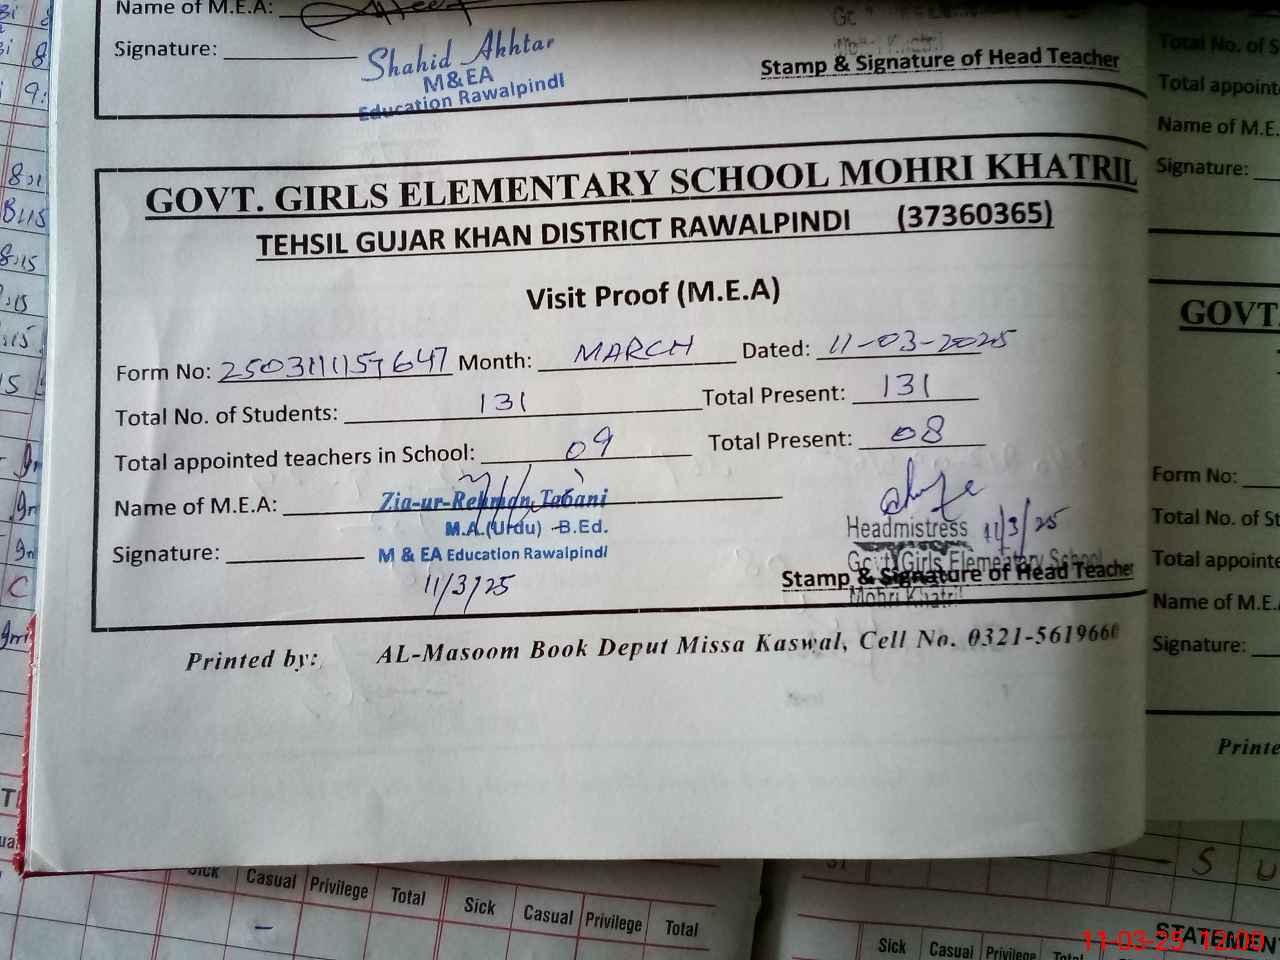 Name of M.E.A:
Signature:
Shahid Akhtar
M&EA
Education Rawalpindi
Stamp & Signature of Head Teacher
GOVT. GIRLS ELEMENTARY SCHOOL MOHRI KHATRIL
TEHSIL GUJAR KHAN DISTRICT RAWALPINDI (37360365)
Visit Proof (M.E.A)
Form No: Month: MARCH Dated: 11-03-2025
Total No. of Students: 131 Total Present: 131
Total appointed teachers in School: 09 Total Present: 08
Name of M.E.A: Zia-ur-Rehman Tabani
M.A.(Urdu) -B.Ed.
Signature: M & EA Education Rawalpindi
11/3/25
Headmistress 11/3/25
Govt Girls Elementary School
Stamp & Signature of Head Teacher
Mohri Khatril
Printed by: AL-Masoom Book Deput Missa Kaswal, Cell No. 0321-5619660
Total No. of S
Total appoint
Name of M.E.
Signature:
GOVT.
Form No:
Total No. of St
Total appointe
Name of M.E.
Signature:
Printe
Sick Casual Privilege Total Sick Casual Privilege Total
S U
STATEMEN
Sick Casual Privilege Total
11-03-25 12:09